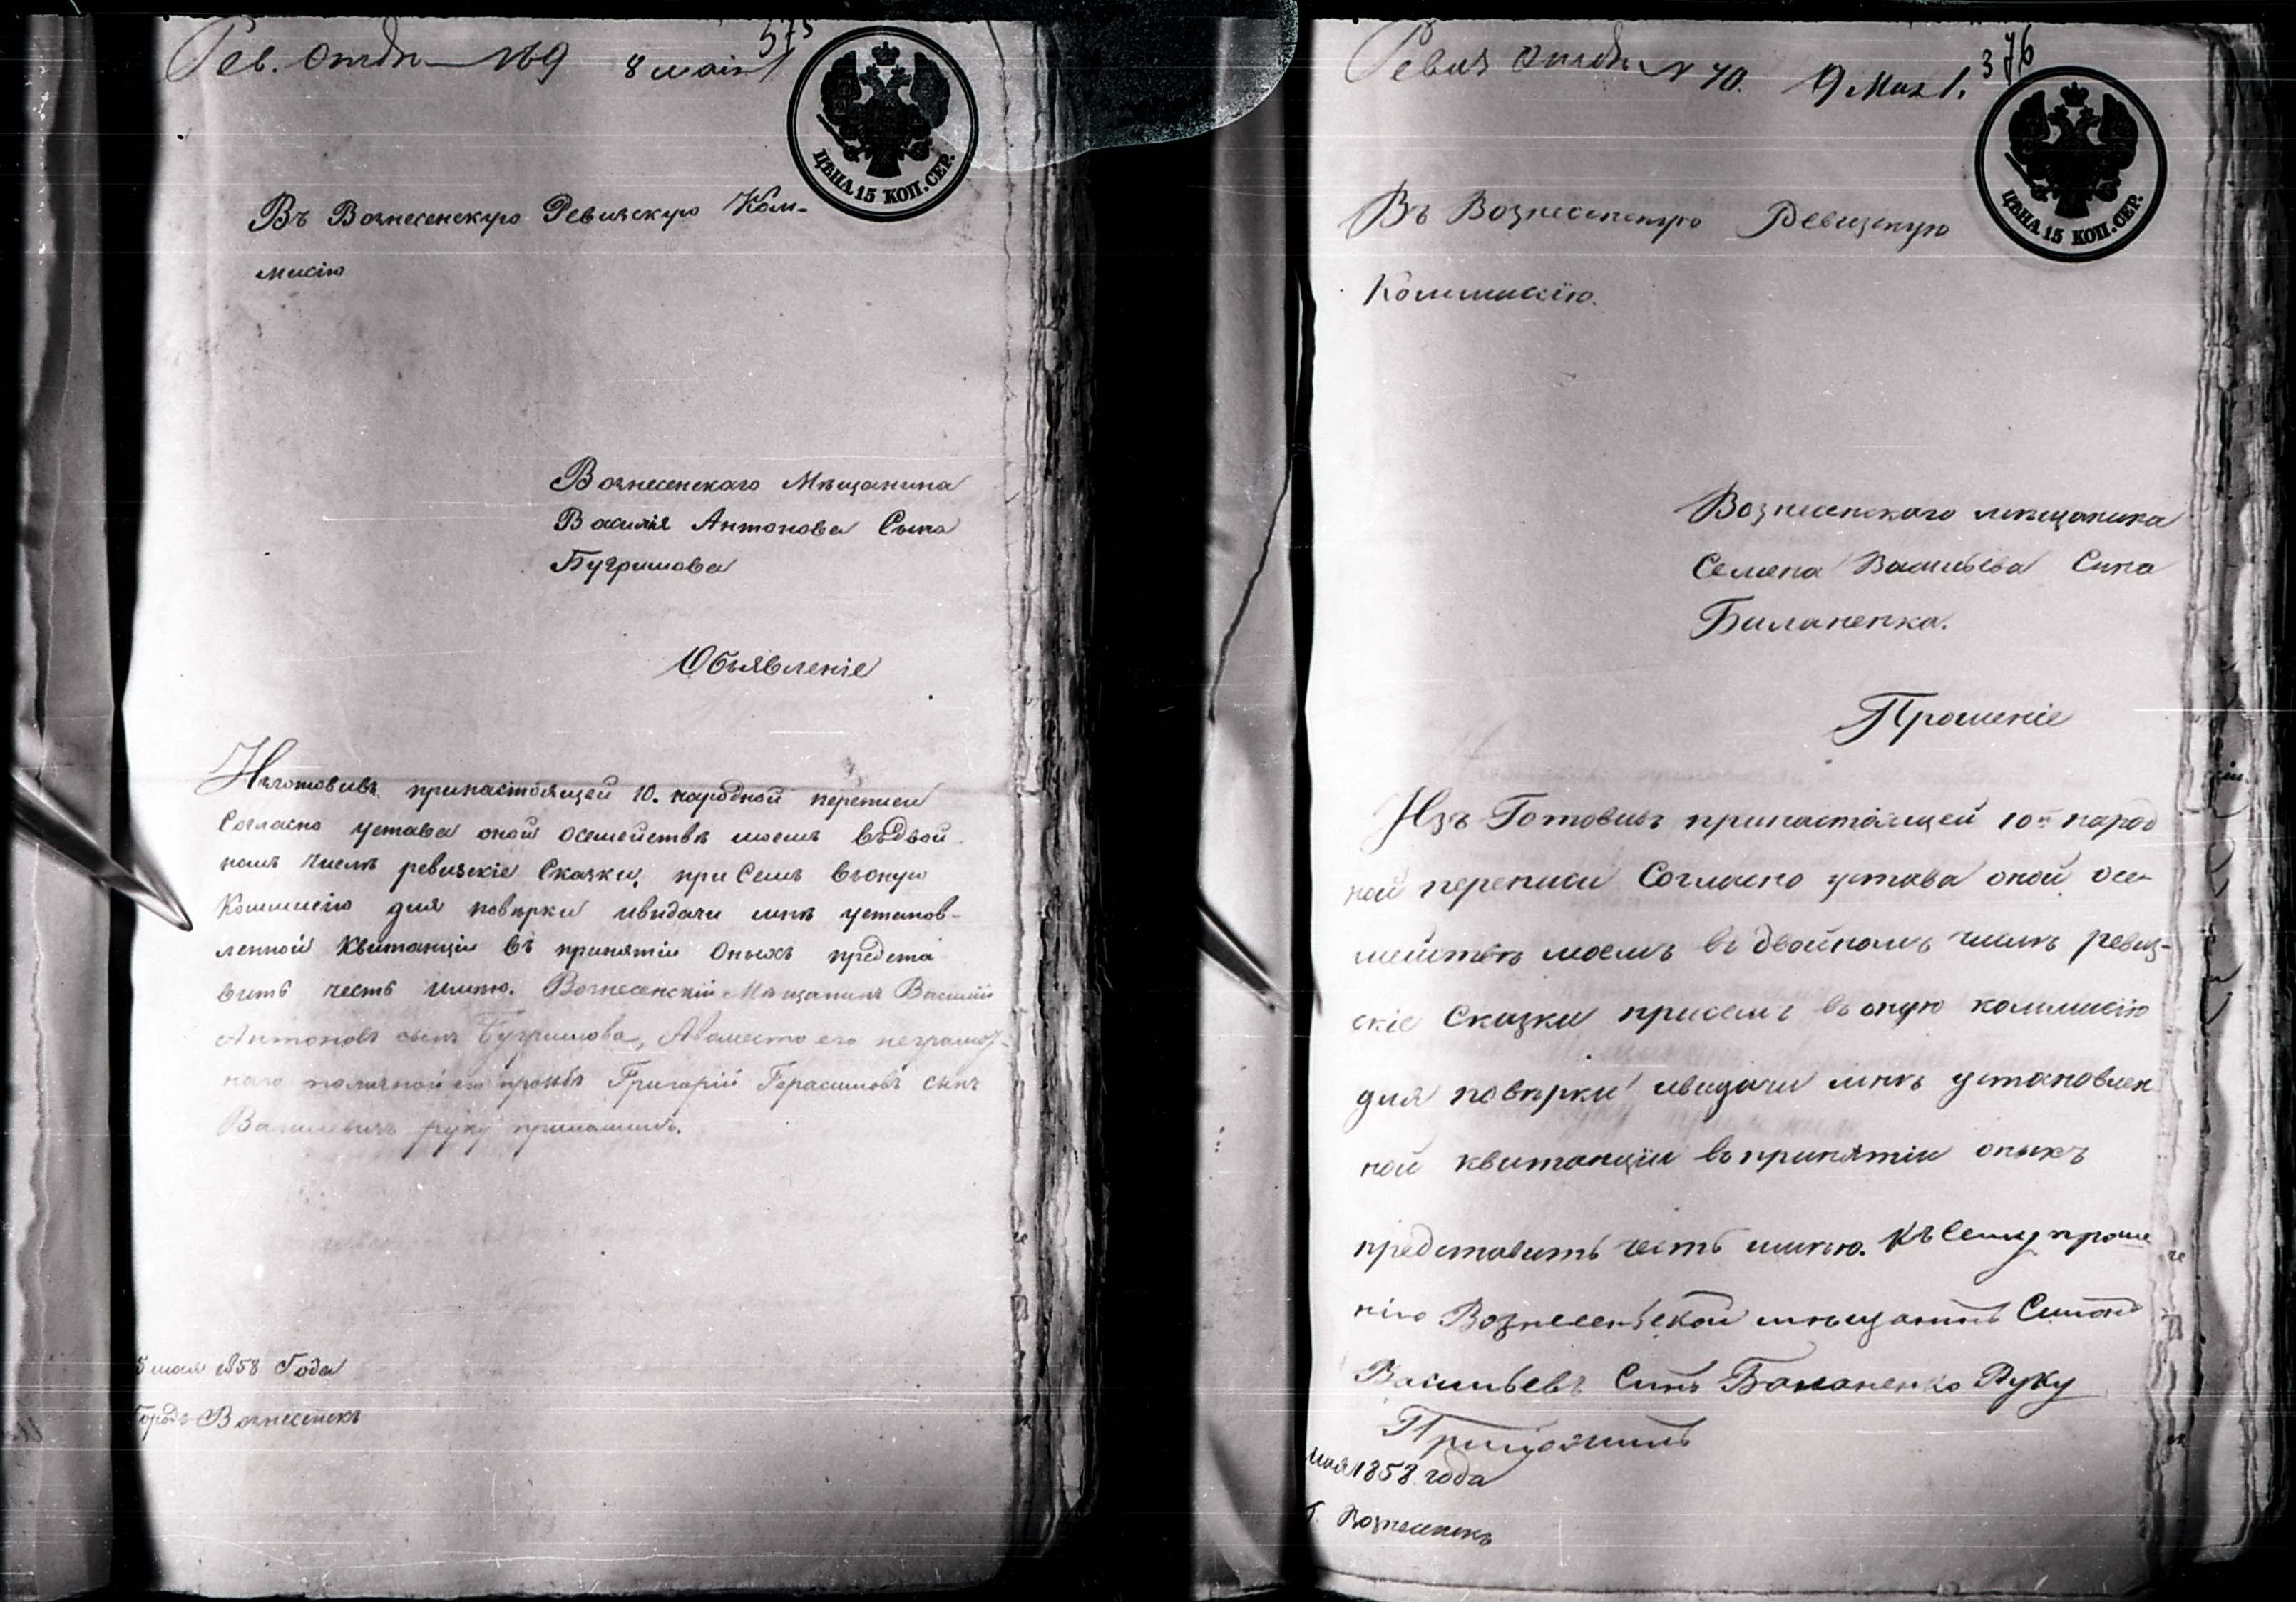 Рев. Отдѣ № 69 8 мая 375
ЦѢНА 15 КОП. СЕР.
Въ Вознесенскую Ревизскую Ком-
мисію
Вознесенскаго Мѣщанина
Василія Антонова Сына
Бугримова
Объявленіе
Изготовивъ принастоящей 10. народной переписи
Согласно устава оной осемействѣ моемъ въдвой-
номъ числѣ ревизскіе Сказки, при Семъ Вьоную
Коммисію для повѣрки ивидачи мнѣ установ-
ленной Квитанціи въ принятіи Оныхъ предста
вить честь имѣю. Вознесенскій Мѣщанинъ Василій
Антоновъ сынъ Бугримова, Авместо его неграмот-
наго поличной его прозьбѣ Григорій Герасимовъ сынъ
Василевичъ руку приложилъ.
5 мая 1858 Года
Городъ Вознесенскъ
Ревиз Отдѣ № 70. 9 Мая 376
ЦѢНА 15 КОП. СЕР.
Въ Вознесенскую Ревизскую
Коммисїю.
Вознесенскаго мѣщанина
Семена Васильева Сина
Баланенка.
Прошеніе
Изъ Готовивъ принастоящей 10й народ
ной переписи Согласно устава оной осе-
мействѣ моемъ въ двойномъ числѣ ревиз-
скіе Сказки присемъ въ оную коммисію
для повѣрки ивидачи мнѣ установлен
ной квитанціи въ принятіи оныхъ
представить честь имѣю. Къ Сему проше
нію Вознесенской мѣщанинъ Симонъ
Васильевъ Синъ Баланенко Руку
Приложилъ
мая 1858 года
Г. Вознесенскъ